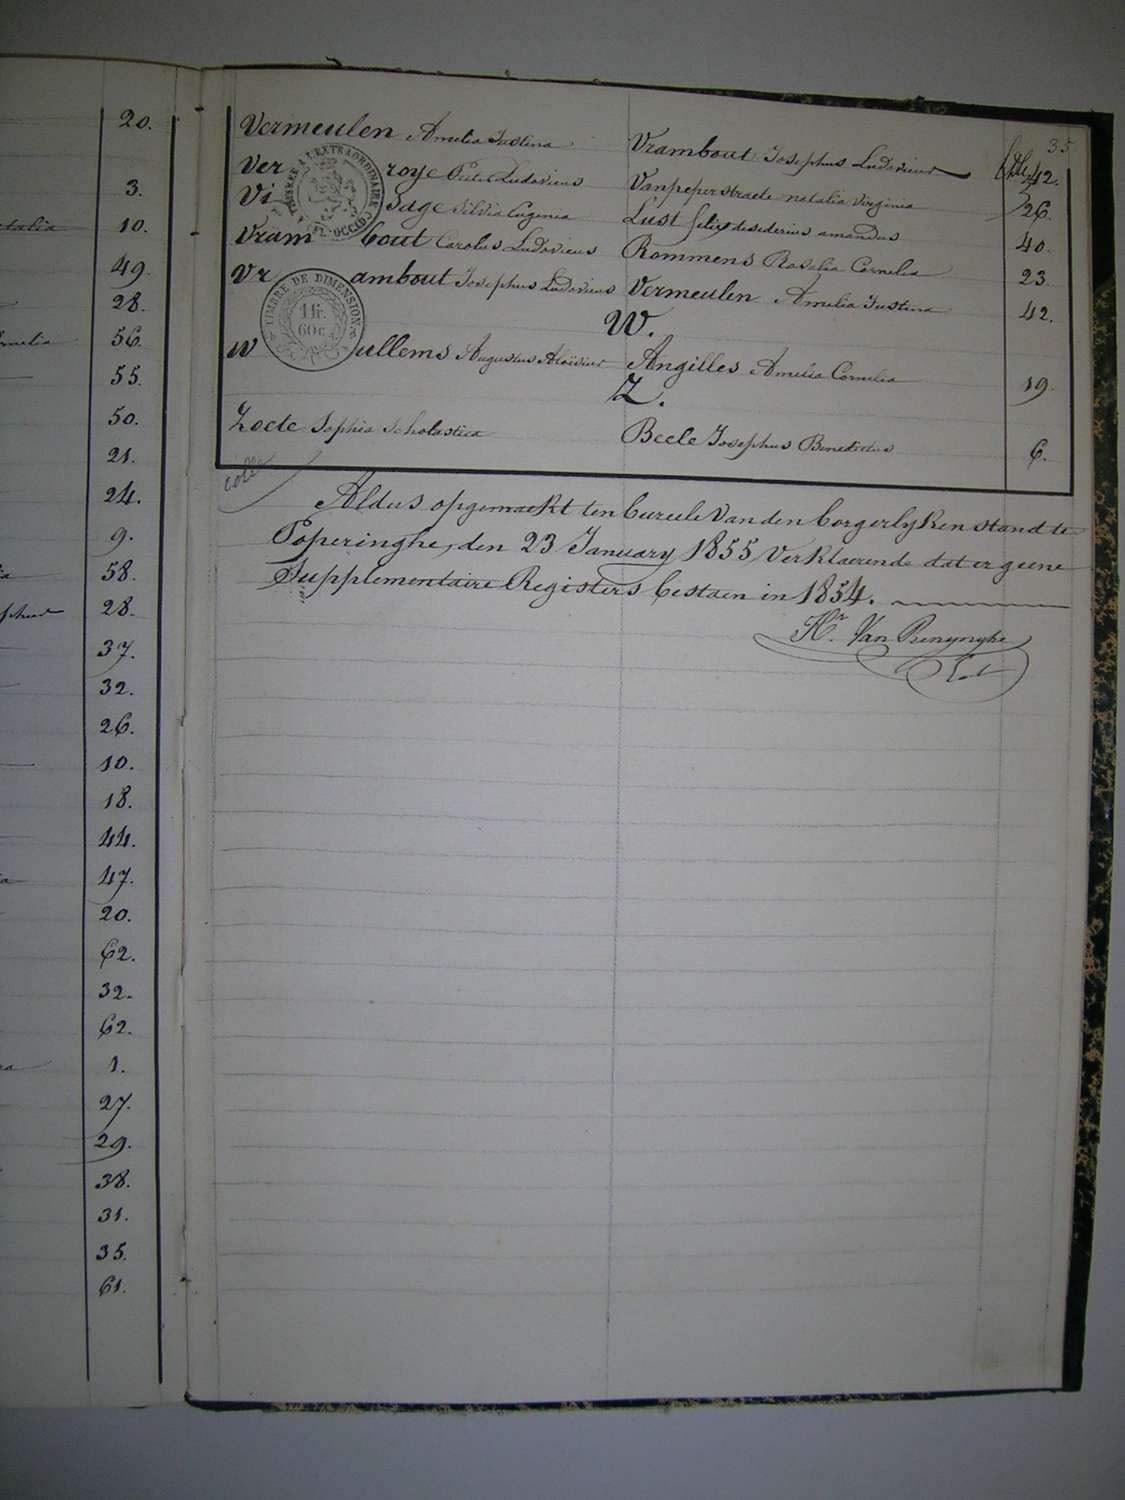 20.
3.
10.
49.
28.
56.
55.
50.
21.
24.
9.
58.
28.
37.
32.
26.
10.
18.
44.
47.
20.
62.
32.
62.
1.
27.
29.
38.
31.
35.
61.
35
Vermeulen Amelia Justina Vrambout Josephus Ludovicus 42.
Ver roye Pieter Ludovicus Vanpeperstraete natalia Virginia 26.
Vi sage Silvia Eugenia Lust felix desiderius amandus 40.
Vram bout Carolus Ludovicus Rommens Rosalia Cornelia 23.
Vr ambout Josephus Ludovicus Vermeulen Amelia Justina 42.
W.
W ullems Augustus Aloïsius Angilles Amelia Cornelia 19.
Z.
Zoete Sophia Scholastica Beele Josephus Benedictus 6.
TIMBRE A L'EXTRAORDINAIRE
FL. OCCID.
TIMBRE DE DIMENSION
1 fr.
60 c.
Aldus opgemaekt ten bureele van den borgerlyken stand te
Poperinghe, den 23 January 1855, verklaerende dat er geene
Supplementaire Registers bestaen in 1854.
Van Renynghe